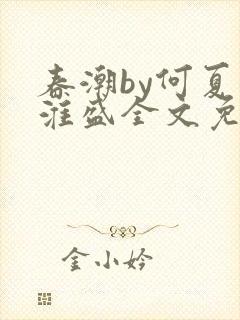 春潮by何夏
漄盛全文免
金小妗